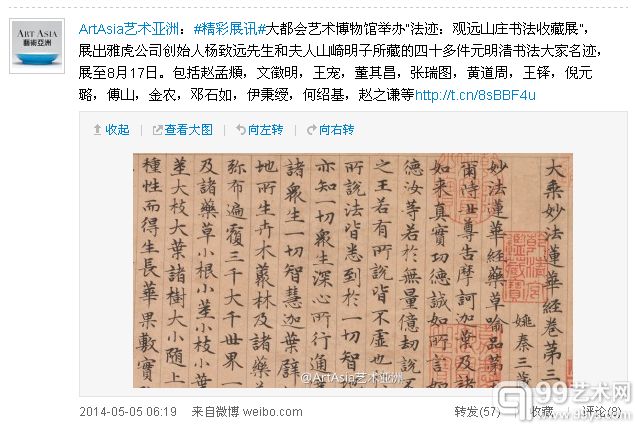 ArtAsia艺术亚洲：#精彩展讯#大都会艺术博物馆举办“法迹：观远山庄书法收藏展”，
展出雅虎公司创始人杨致远先生和夫人山崎明子所藏的四十多件元明清书法大家名迹，
展至8月17日。包括赵孟頫，文徵明，王宠，董其昌，张瑞图，黄道周，王铎，倪元
璐，傅山，金农，邓石如，伊秉绶，何绍基，赵之谦等http://t.cn/8sBBF4u
ART ASIA
藝術亞洲
收起 查看大图 向左转 向右转
大乘妙法蓮華經卷第三
姚秦三藏
妙法蓮華經藥草喻品第
爾時世尊告摩訶迦葉及諸
如来真實功德誠如所言如
德汝等若於無量億劫說
之王若有所說皆不虛也
所說法皆悉到於一切智
亦知一切眾生深心所行通
諸眾生一切智慧迦葉譬
地所生卉木藂林及諸藥
弥布遍覆三千大千世界一
及諸藥草小根小莖小枝小
莖大枝大葉諸樹大小随上
種性而得生長華果敷實
@ArtAsia艺术亚洲
2014-05-05 06:19 来自微博 weibo.com 转发(57) 收藏 评论(8)
99艺术网